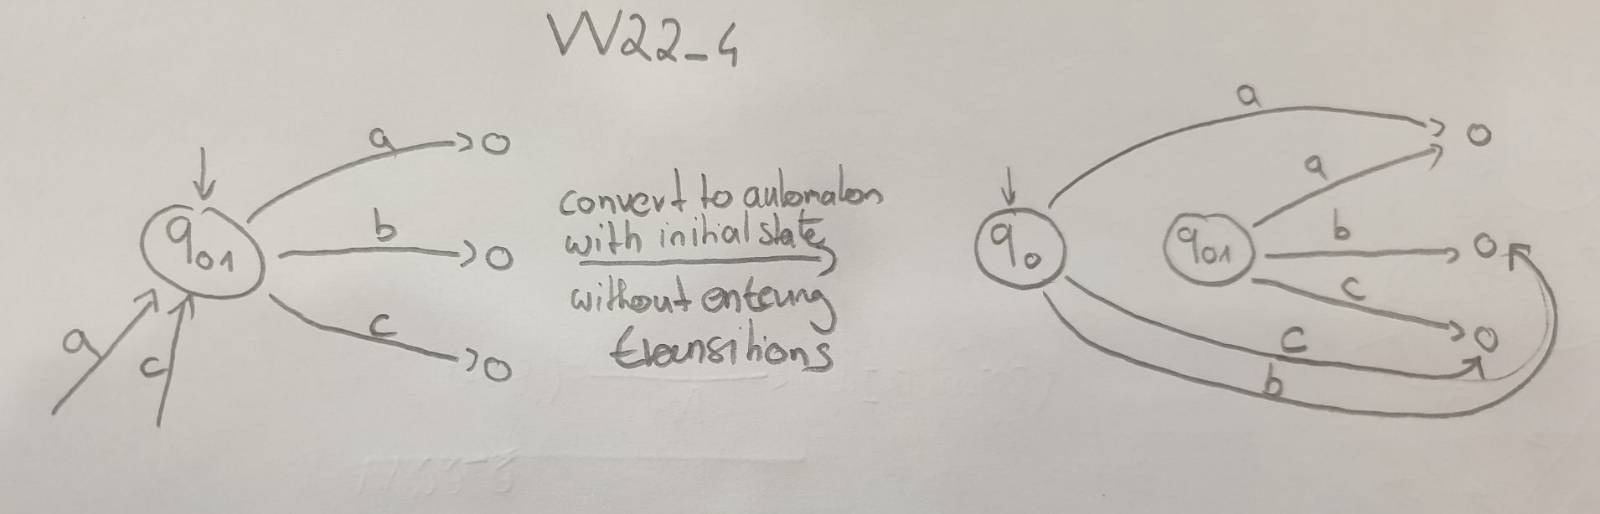 W22_4
a
b
c
q01
a
c
convert to automaton
with initial state
without entering
transitions
a
a
b
c
q0
q01
c
b